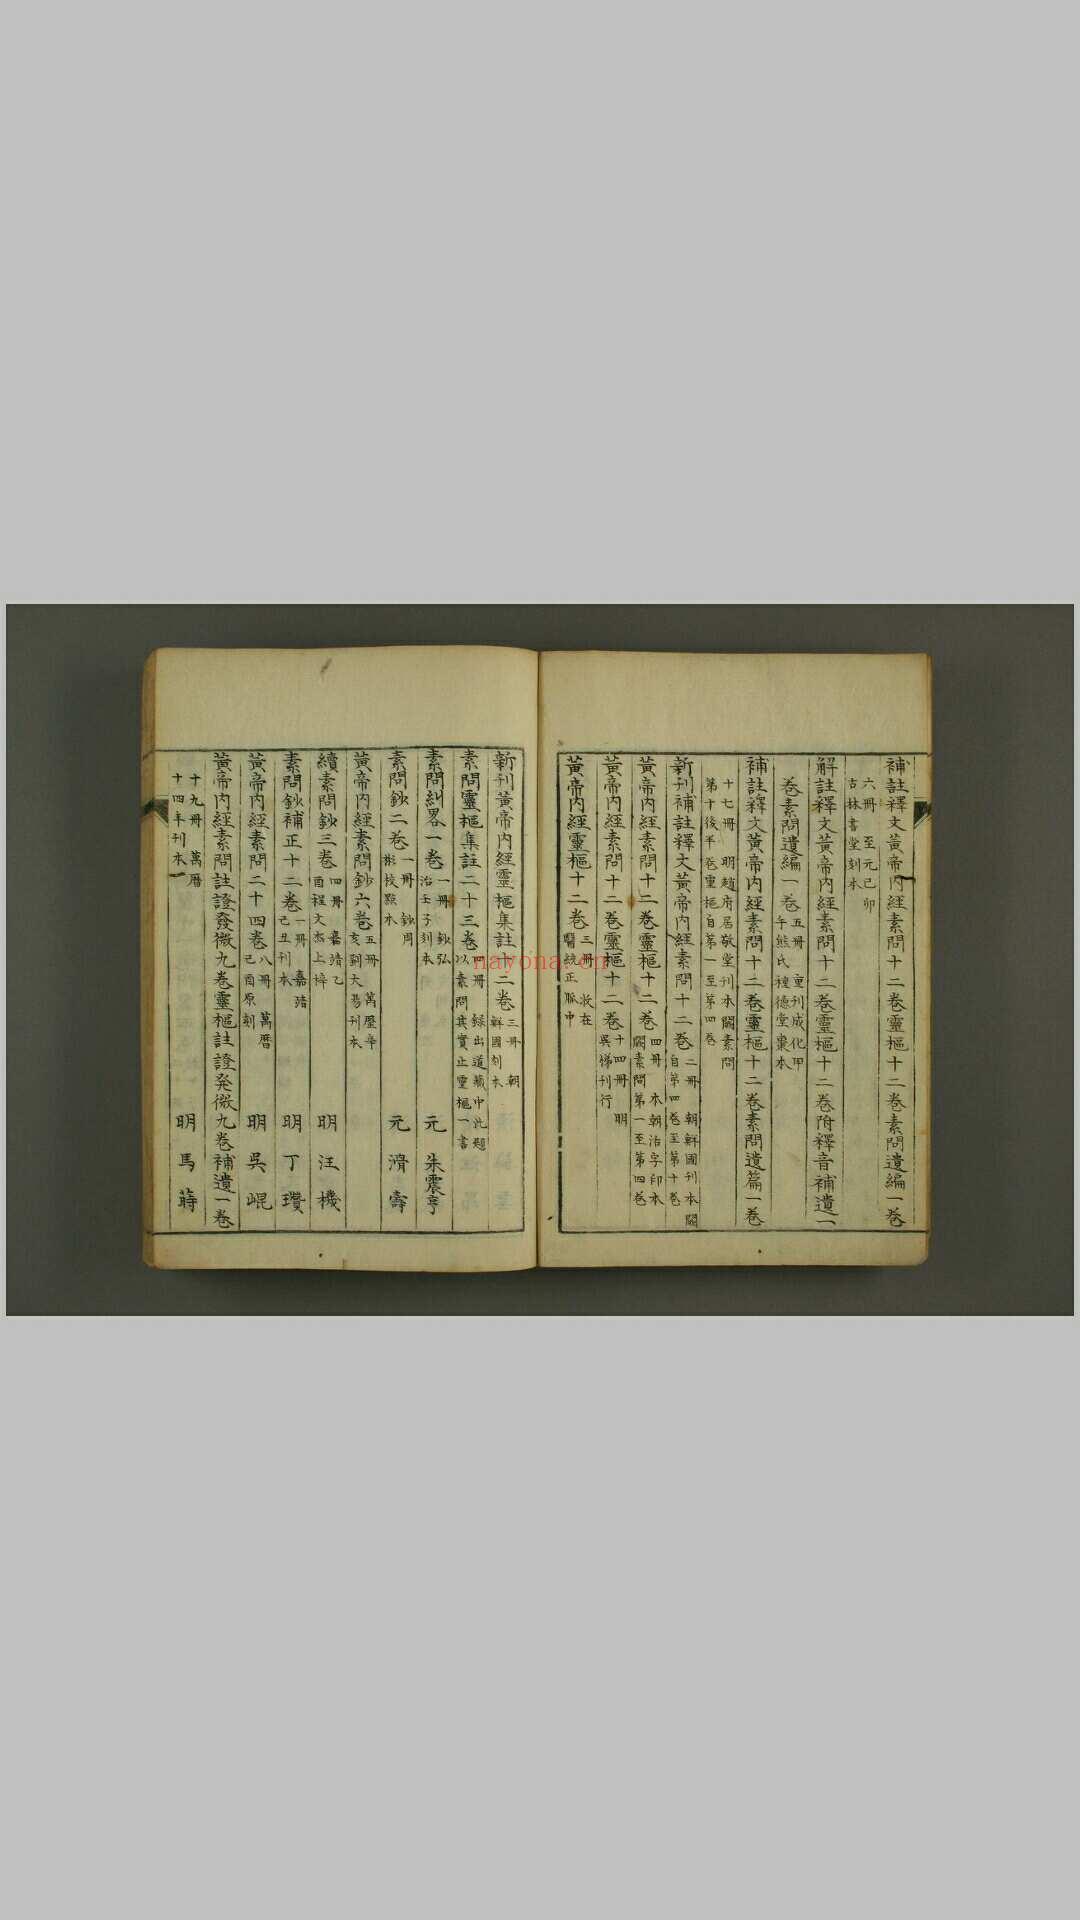 補註釋文黃帝內經素問十二卷靈樞十二卷素問遺編一卷
六冊 至元己卯
古林書堂刻本
解註釋文黃帝內經素問十二卷靈樞十二卷附釋音補遺一
卷素問遺編一卷
五冊 重刊成化甲
午熊氏種德堂槧本
補註釋文黃帝內經素問十二卷靈樞十二卷素問遺篇一卷
十七冊 明趙府居敬堂刊本闕素問
第十後半卷靈樞自第一至第四卷
新刊補註釋文黃帝內經素問十二卷
二冊 朝鮮國刊本 闕
自第四卷至第十卷
黃帝內經素問十二卷靈樞十二卷
四冊 本朝活字印本
闕素問第一至第四卷
黃帝內經素問十二卷靈樞十二卷
十四冊 明
吳悌刊行
黃帝內經靈樞十二卷
三冊 收在
醫統正脈中
新刊黃帝內經靈樞集註十二卷
三冊 朝
鮮國刻本
素問靈樞集註二十三卷
四冊 錄出道藏中此題
以素問其實止靈樞一書
素問糾畧一卷
一冊 鈔弘
治壬子刻本
元 朱震亨
素問鈔二卷
一冊 鈔周
彬校點本
元 滑壽
黃帝內經素問鈔六卷
五冊 萬歷辛
亥劉大易刊本
續素問鈔三卷
四冊 嘉靖乙
酉程文杰上梓
明 汪機
素問鈔補正十二卷
一冊 嘉靖
己丑刊本
明 丁瓚
黃帝內經素問二十四卷
八冊 萬曆
己酉原刻
明 吳崐
黃帝內經素問註證發微九卷靈樞註證発微九卷補遺一卷
十九冊 萬曆
十四年刊本
明 馬蒔
nayona.cn